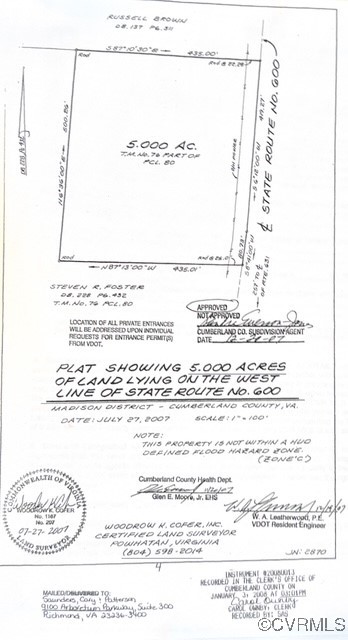 RUSSELL BROWN
DB.137 PG.311
S87°10'30"E
435.00'
Rod
Rod
5.000 AC.
T.M. No. 76 PART OF
PCL. 80
N6°35'00"E
AH POWER
419.27'
S 6°18'00"W
℄ STATE ROUTE No. 600
80.73'
S8°41'00"W
Rod
N87°13'00"W
435.01'
STEVEN R. FOSTER
DB. 238 PG. 432
T.M. No. 76 PCL. 80
LOCATION OF ALL PRIVATE ENTRANCES
WILL BE ADDRESSED UPON INDIVIDUAL
REQUESTS FOR ENTRANCE PERMIT(S)
FROM VDOT.
APPROVED
NOT APPROVED
CUMBERLAND CO. SUBDIVISION AGENT
DATE
PLAT SHOWING 5.000 ACRES
OF LAND LYING ON THE WEST
LINE OF STATE ROUTE No. 600
MADISON DISTRICT - CUMBERLAND COUNTY, VA.
DATE: JULY 27, 2007 SCALE: 1"=100'
NOTE:
THIS PROPERTY IS NOT WITHIN A HUD
DEFINED FLOOD HAZARD ZONE.
(ZONE 'C')
Cumberland County Health Dept.
Glen E. Moore, Jr. EHS
W. A. Leatherwood, P.E.
VDOT Resident Engineer
COMMONWEALTH OF VIRGINIA
WOODROW K. COFER
No. 1187
No. 207
07-27-2007
LAND SURVEYOR
WOODROW K. COFER, INC.
CERTIFIED LAND SURVEYOR
POWHATAN, VIRGINIA
(804) 598-2014
JN: C870
INSTRUMENT #200800013
RECORDED IN THE CLERK'S OFFICE OF
CUMBERLAND COUNTY ON
JANUARY 3, 2008 AT 03:01PM
CAROL OWNBY, CLERK
RECORDED BY: SAS
MAILED/DELIVERED TO:
Saunders, Cary & Patterson
9100 Arboretum Parkway, Suite 300
Richmond, VA 23236-3400
©CVRMLS